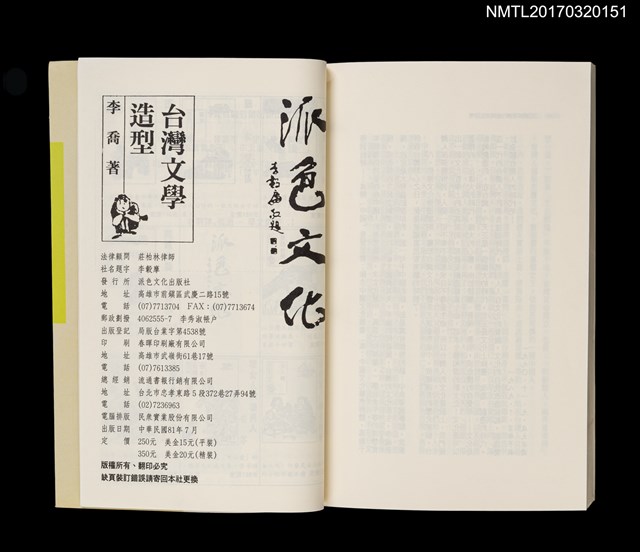 NMTL20170320151
台灣文學
造型
李喬 著
派色文化
法律顧問 莊柏林律師
社名題字 李毅摩
發行所 派色文化出版社
地址 高雄市前鎮區武慶二路15號
電話 (07)7713704 FAX：(07)7713674
郵政劃撥 4062555-7 李秀淑帳戶
出版登記 局版台業字第4538號
印刷 春暉印刷廠有限公司
地址 高雄市武嶺街61巷17號
電話 (07)7613385
總經銷 流通書報行銷有限公司
地址 台北市忠孝東路５段372巷27弄94號
電話 (02)7236963
電腦排版 民衆實業股份有限公司
出版日期 中華民國81年７月
定價 250元 美金15元(平裝)
350元 美金20元(精裝)
版權所有、翻印必究
缺頁裝訂錯誤請寄回本社更換